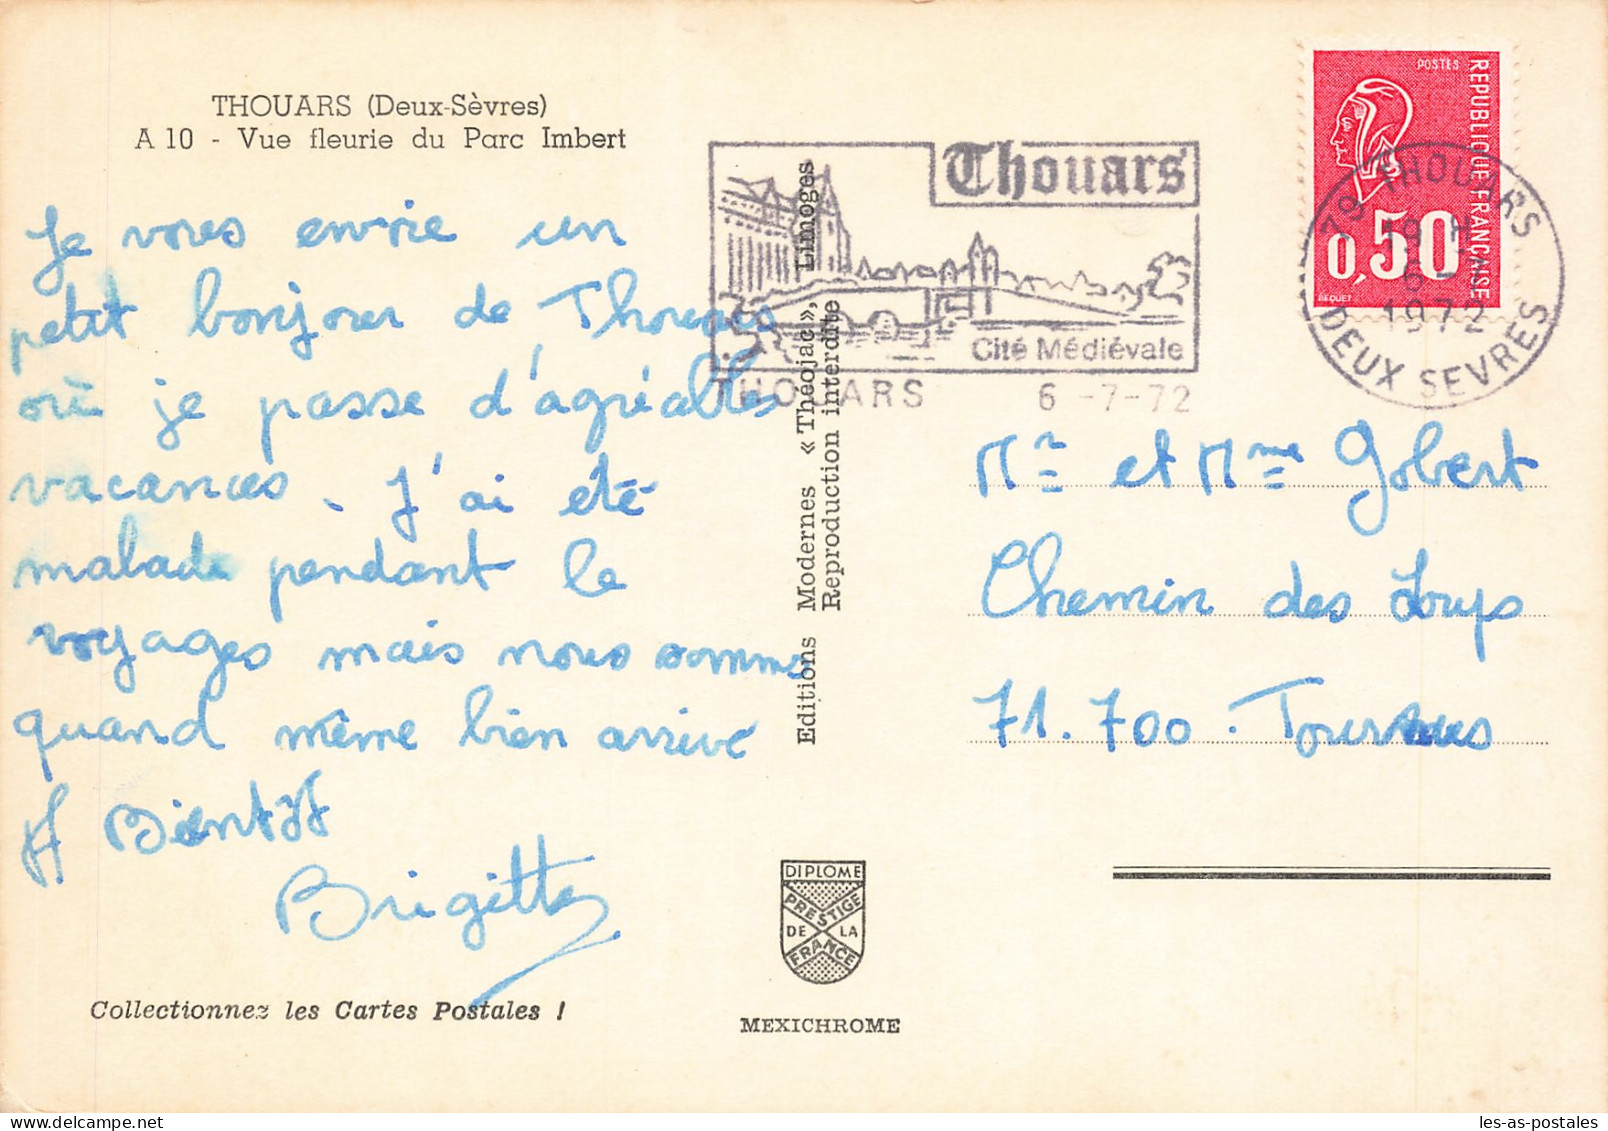 THOUARS (Deux-Sèvres)
A 10 - Vue fleurie du Parc Imbert
Je vous envoie un
petit bonjour de Thouars
où je passe d'agréables
vacances. J'ai été
malade pendant le
voyages mais nous sommes
quand même bien arrivé
A Bientôt
Brigitte
Collectionnez les Cartes Postales !
Editions Modernes « Théojac », Limoges
Reproduction interdite
DIPLOME
PRESTIGE
DE LA
FRANCE
MEXICHROME
Thouars
Cité Médiévale
THOUARS 6 -7-72
POSTES
REPUBLIQUE FRANÇAISE
0,50
BEQUET
79 THOUARS
19 H
6 -
1972
DEUX SEVRES
Mr et Mme Gobert
Chemin des Loups
71.700. Tournus
les-as-postales